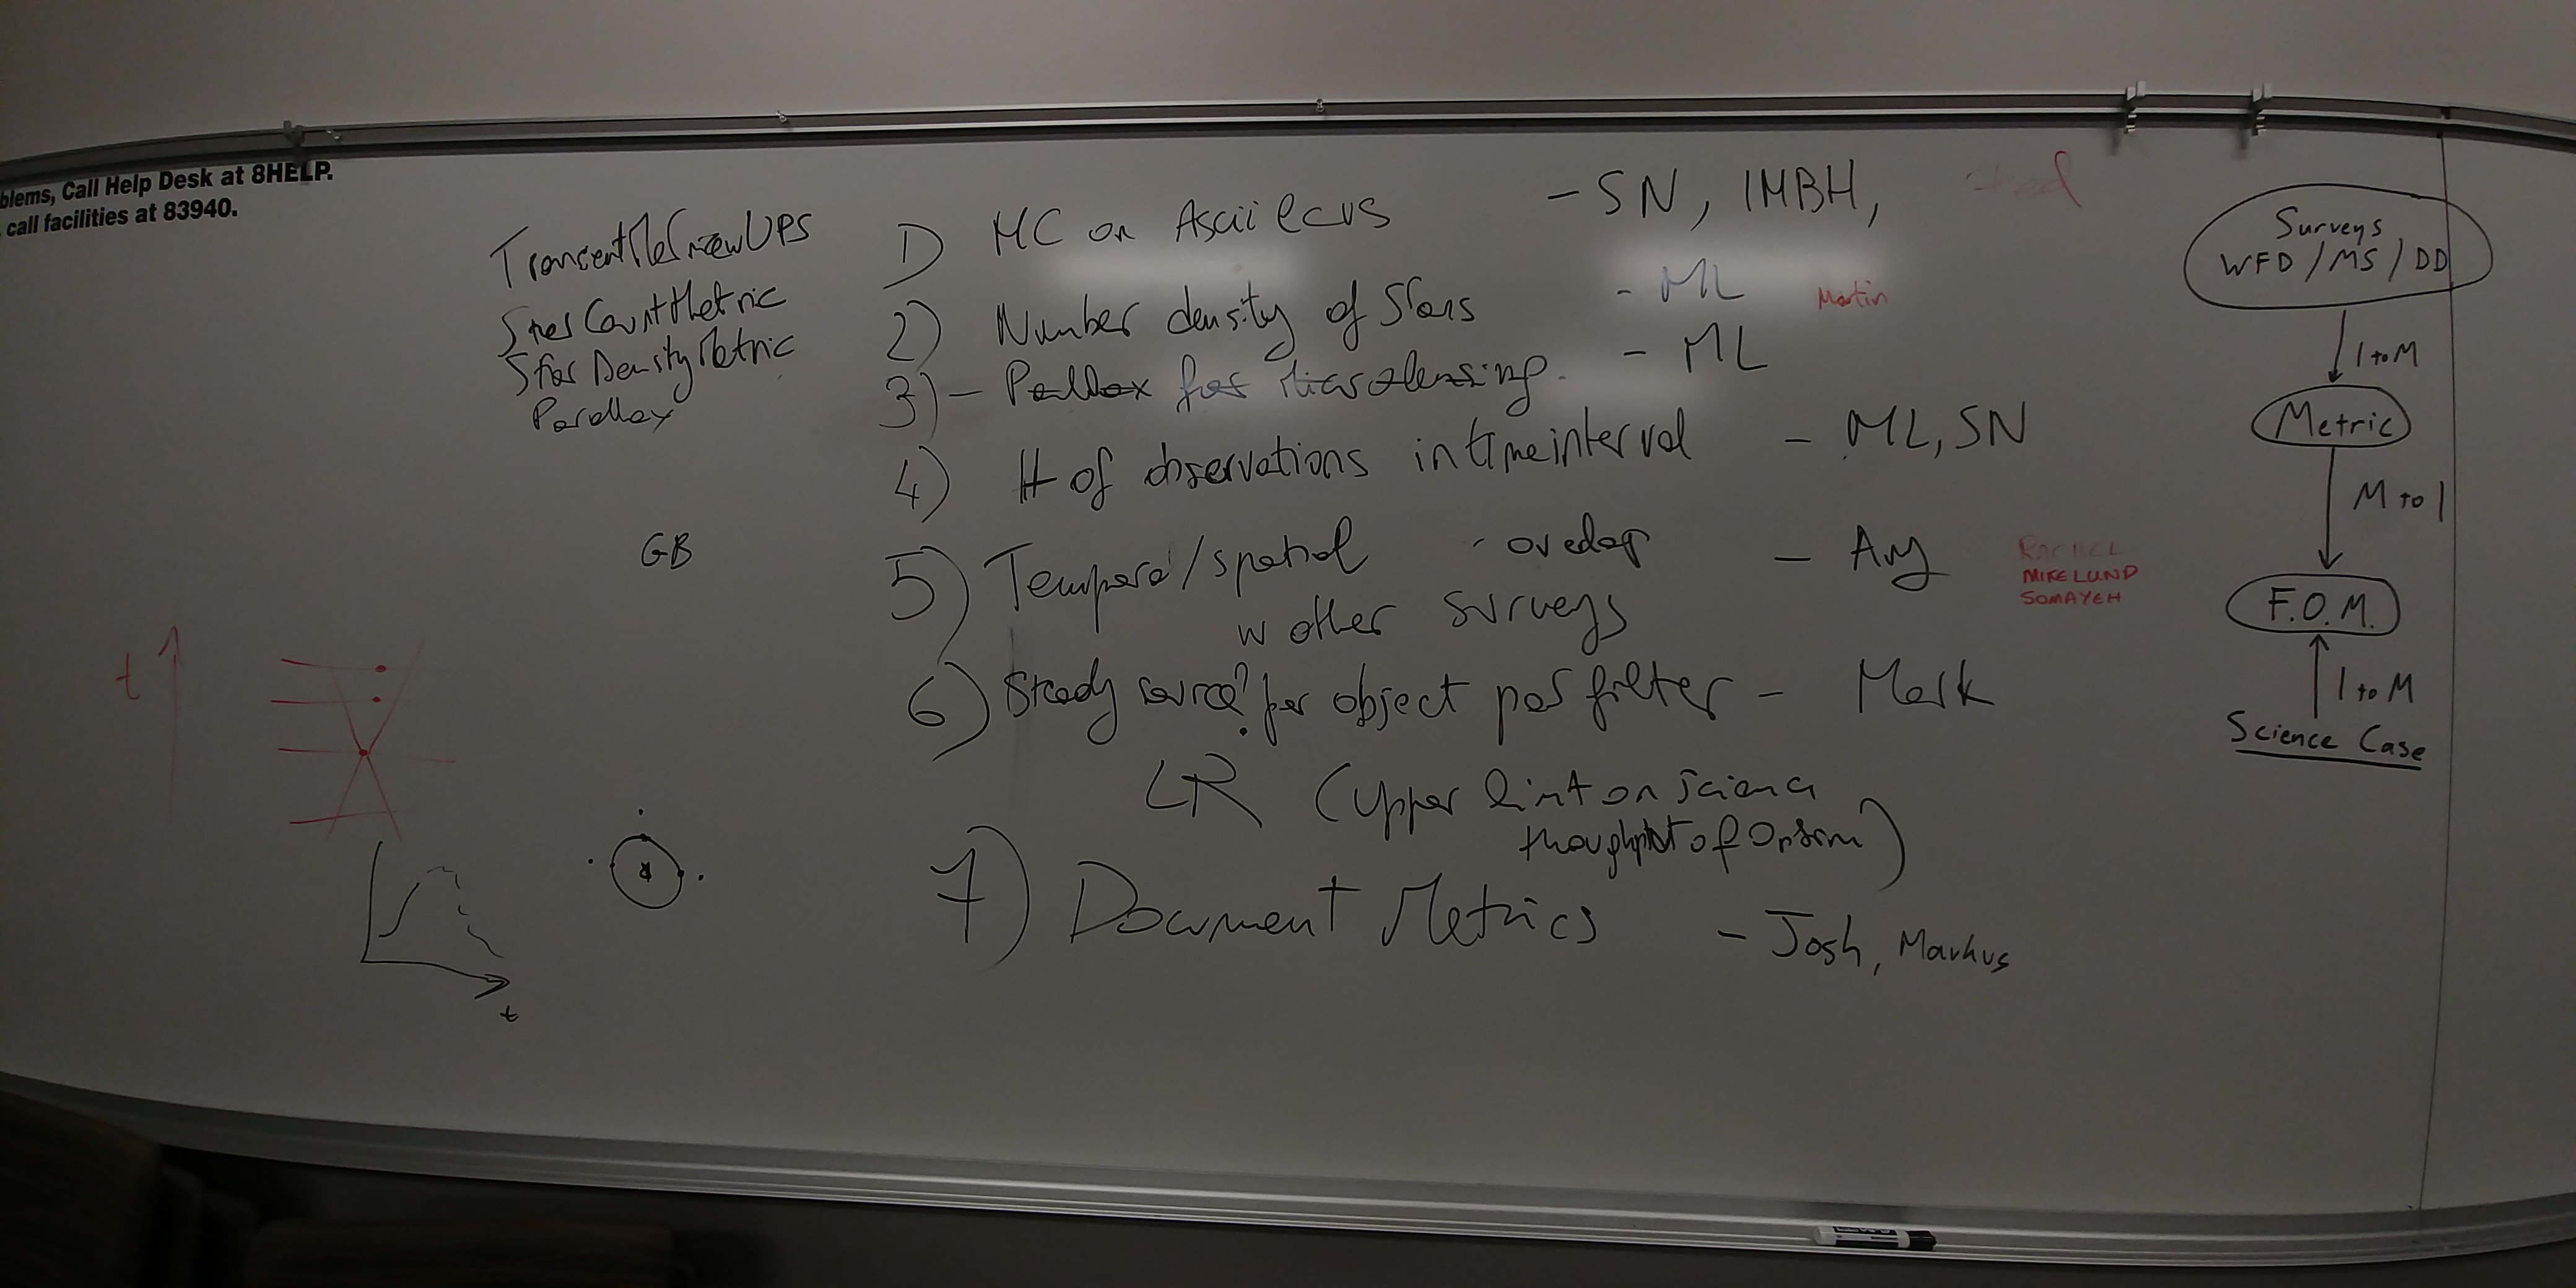 blems, Call Help Desk at 8HELP.
call facilities at 83940.
UPS
CountMetric
Star Density Metric
Parallax
GB
t
t
1) MC on Ascii lcvs - SN, IMBH,
2) Number density of Stars - ML Martin
3) - Parallax for microlensing. - ML
4) # of observations in time interval - ML, SN
5) Temporal/spatial - overlap - Any
w other surveys
RACHEL
MIKE LUND
SOMAYEH
6) Steady source? per object per filter - Mark
LR (upper limit on science
of Opsim)
7) Document Metrics - Josh, Markus
Surveys
WFD / MS / DD
1 to M
Metric
M to 1
F.O.M.
1 to M
Science Case